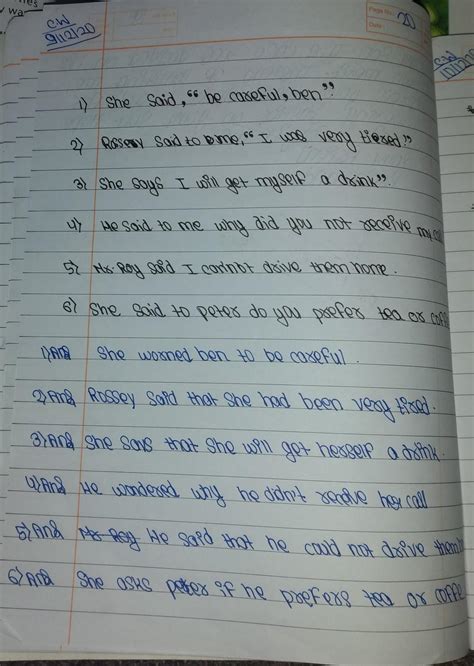 CW
9/12/20
Page No. 20
Date
CW
10/12/20
1) She said, "be careful, ben".
2) Rossey said to me, "I was very tiered"
3) She says I will get myself a drink".
4) He said to me why did you not receive my call
5) Mr. Roy said I cannot drive them home.
6) She said to peter do you prefer tea or coffe
1) Ans She worned ben to be careful.
2) Ans Rossey said that she had been very tired.
3) Ans She says that she will get herself a drink.
4) Ans He wondered why he didn't receive her call
5) Ans Mr. Roy He said that he could not drive them
6) Ans She asks peter if he prefers tea or coffe